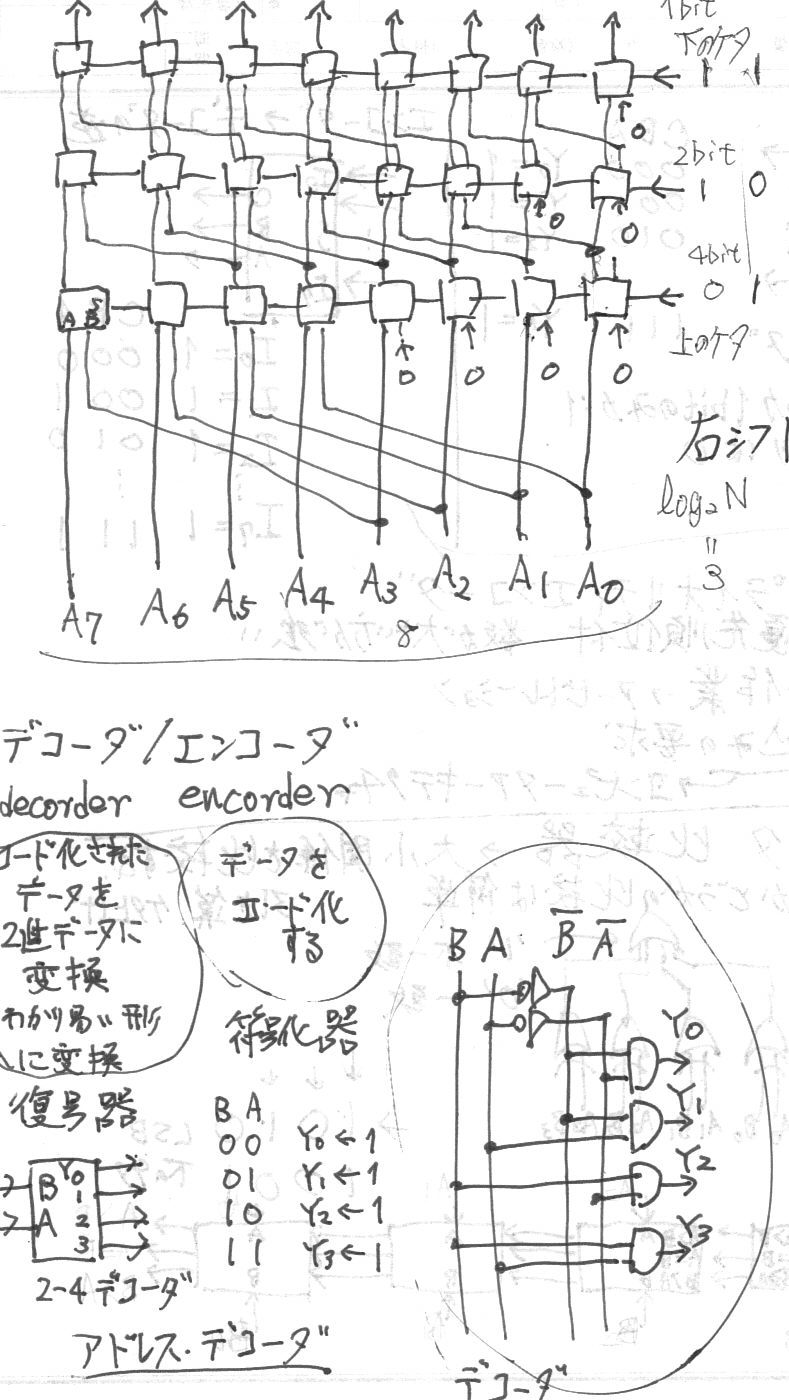 1bit
下のケタ
1 1
0
2bit
1 0
0 0
4bit
0 1
A B S
上のケタ
0 0 0 0
右シフト
log₂N
"
3
A7 A6 A5 A4 A3 A2 A1 A0
8
デコーダ/エンコーダ
decorder encorder
コード化された
データを
2進データに
変換
わかり易い形
に変換
復号器
データを
コード化
する
符号化器
B A
0 0 Y0←1
0 1 Y1←1
1 0 Y2←1
1 1 Y3←1
B Y0
1
A 2
3
2-4デコーダ
アドレス・デコーダ
B A B̅ A̅
Y0
Y1
Y2
Y3
デコーダ